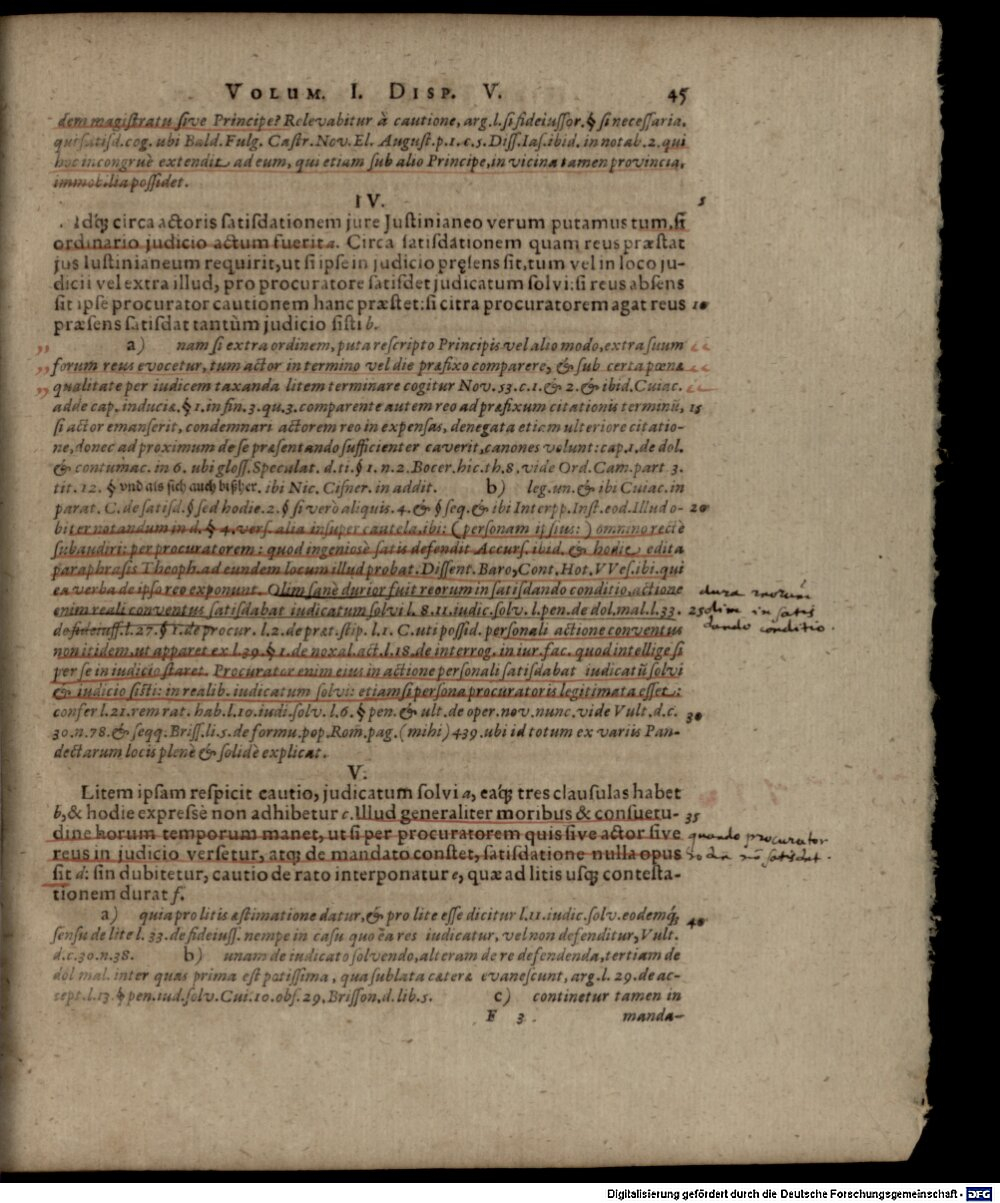 VOLUM. I. DISP. V. 45
dem magiſtratu ſive Principe? Relevabitur à cautione, arg. l. ſi fideiuſſor. § ſi neceſſaria.
qui ſatiſd. cog. ubi Bald. Fulg. Caſtr. Nov. El. Auguſt. p. 1. c. 5. Diſſ. Iaſ. ibid. in notab. 2. qui
hoc incongruè extendit ad eum, qui etiam ſub alio Principe, in vicina tamen provincia,
immobilia poſſidet.
IV. 5
Idq́; circa actoris ſatiſdationem jure Juſtinianeo verum putamus tum, ſi
ordinario judicio actum fuerit a. Circa ſatiſdationem quam reus præſtat
jus Iuſtinianeum requirit, ut ſi ipſe in judicio pręſens ſit, tum vel in loco ju-
dicii vel extra illud, pro procuratore ſatiſdet judicatum ſolvi: ſi reus abſens
ſit ipſe procurator cautionem hanc præſtet: ſi citra procuratorem agat reus 10
præſens ſatiſdat tantùm judicio ſiſti b.
a) nam ſi extra ordinem, puta reſcripto Principis vel alio modo, extra ſuum
forum reus evocetur, tum actor in termino vel die præfixo comparere, & ſub certa pœna
qualitate per iudicem taxanda litem terminare cogitur Nov. 53. c. 1. & 2. & ibid. Cuiac.
adde cap. induciæ. § 1. in fin. 3. qu. 3. comparente autem reo ad præfixum citationis terminũ, 15
ſi actor emanſerit, condemnari actorem reo in expenſas, denegata etiam ulteriore citatio-
ne, donec ad proximum de ſe præſentando ſufficienter caverit, canones volunt: cap. 1. de dol.
& contumac. in 6. ubi gloſſ. Speculat. d. ti. § 1. n. 2. Bocer. hic. th. 8. vide Ord. Cam. part 3.
tit. 12. § vnd als ſich auch bißher. ibi Nic. Ciſner. in addit. b) leg. un. & ibi Cuiac. in
parat. C. de ſatiſd. § ſed hodie. 2. § ſi verò aliquis. 4. & § ſeq. & ibi Interpp. Inſt. eod. Illud o- 20
biter notandum in d. § 4. verſ. alia inſuper cautela. ibi: (perſonam ipſius:) omnino rectè
ſubaudiri: per procuratorem: quod ingenioſè ſatis defendit Accurſ. ibid. & hodie edita
paraphraſis Theoph. ad eundem locum illud probat. Diſſent. Baro, Cont. Hot. VVeſ. ibi. qui
ea verba de ipſo reo exponunt. Olim ſanè durior fuit reorum in ſatiſdando conditio, actione
dura reorum
enim reali conventus ſatiſdabat iudicatum ſolvi l. 8. 11. iudic. ſolv. l. pen. de dol. mal. l. 33. 25
olim in satis
de fideiuſſ. l. 27. § 1. de procur. l. 2. de præt. ſtip. l. 1. C. uti poſſid. perſonali actione conventus
dando conditio.
non itidem. ut apparet ex l. 39. § 1. de noxal. act. l. 18. de interrog. in iur. fac. quod intellige ſi
per ſe in iudicio ſtaret. Procurator enim eius in actione perſonali ſatiſdabat iudicatũ ſolvi
& iudicio ſiſti: in realib. iudicatum ſolvi: etiamſi perſona procuratoris legitimata eſſet:
confer l. 21. rem rat. hab. l. 10. iudi. ſolv. l. 6. § pen. & ult. de oper. nov. nunc. vide Vult. d. c. 30
30. n. 78. & ſeqq. Briſſ. li. 5. de formu. pop. Rom. pag. (mihi) 439. ubi id totum ex variis Pan-
dectarum locis plenè & ſolidè explicat.
V.
Litem ipſam reſpicit cautio, judicatum ſolvi a, eaq́; tres clauſulas habet
b, & hodie expreſsè non adhibetur c. Illud generaliter moribus & conſuetu- 35
dine horum temporum manet, ut ſi per procuratorem quis ſive actor ſive
quando procurator
reus in judicio verſetur, atq́; de mandato conſtet, ſatiſdatione nulla opus
hodie nõ satisdat.
ſit d: ſin dubitetur, cautio de rato interponatur e, quæ ad litis uſq́; conteſta-
tionem durat f.
a) quia pro litis æſtimatione datur, & pro lite eſſe dicitur l. 11. iudic. ſolv. eodemq́; 40
ſenſu de lite l. 33. de fideiuſſ. nempe in caſu quo ea res iudicatur, vel non defenditur, Vult.
d. c. 30. n. 38. b) unam de iudicato ſolvendo, alteram de re defendenda, tertiam de
dol mal. inter quas prima eſt potiſſima, qua ſublata cæteræ evaneſcunt, arg. l. 29. de ac-
cept. l. 13. § pen. iud. ſolv. Cui. 10. obſ. 29. Briſſon. d. lib. 5. c) continetur tamen in
F 3 manda-
Digitalisierung gefördert durch die Deutsche Forschungsgemeinschaft - DFG